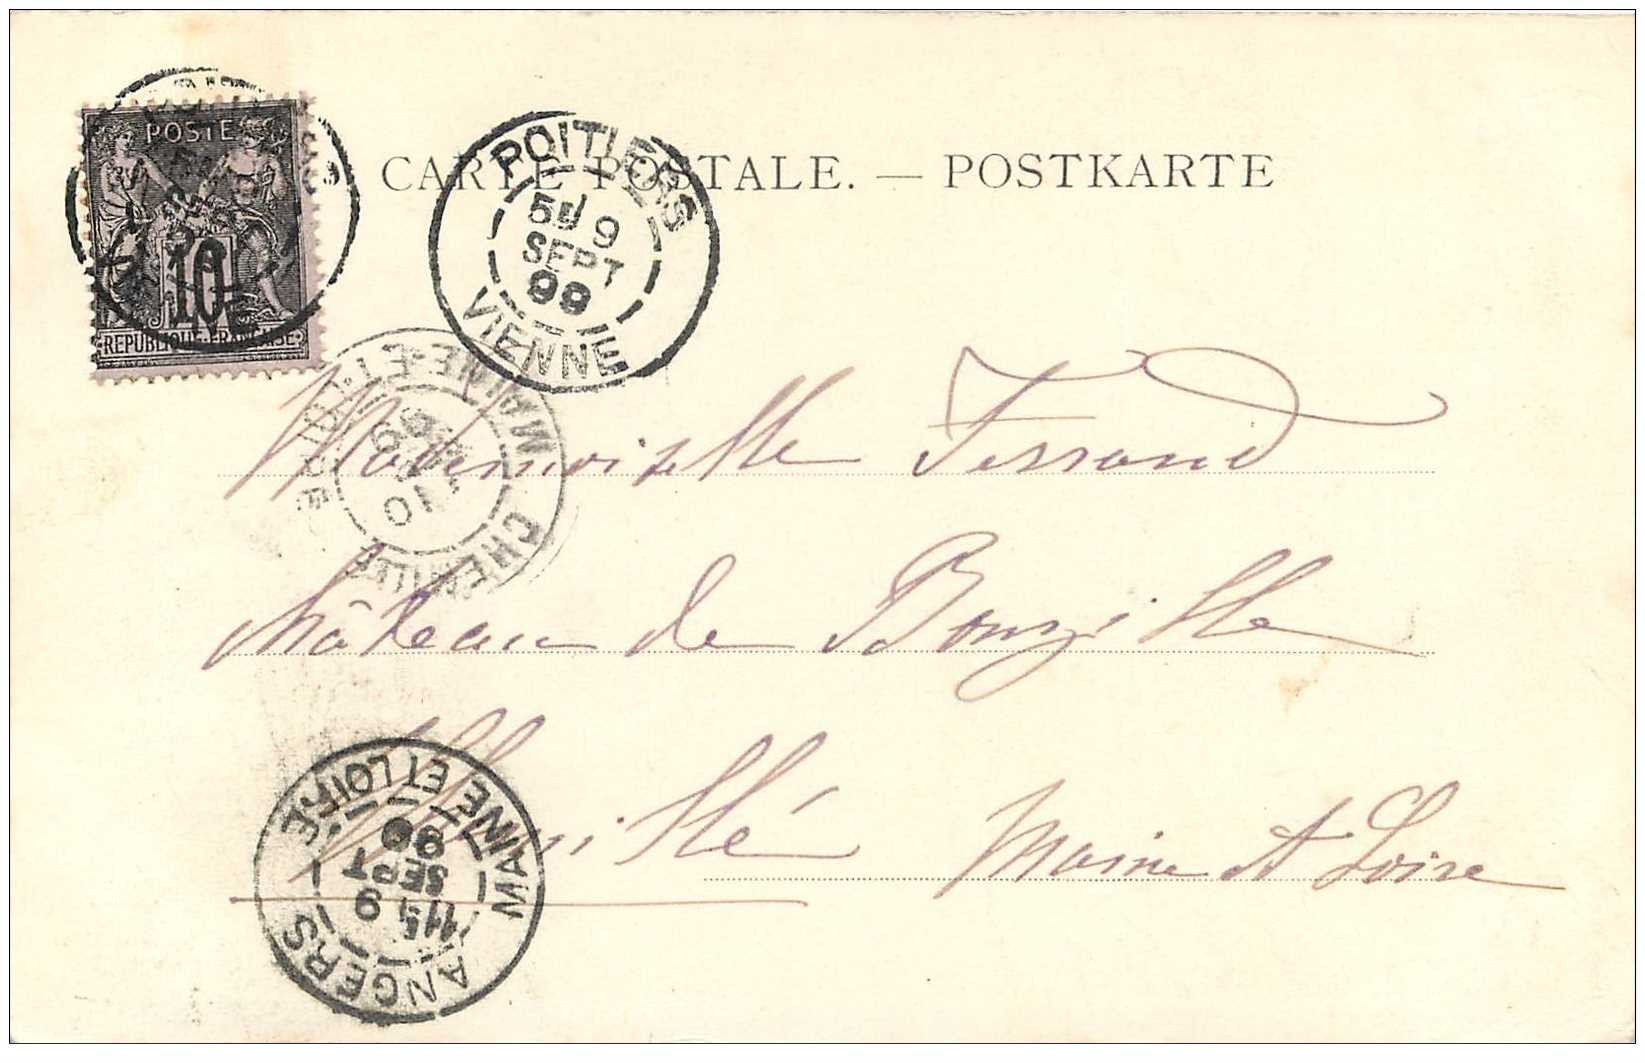 POSTE
10
REPUBLIQUE FRANCAISE
CARTE POSTALE. — POSTKARTE
POITIERS
5E 9
SEPT
99
VIENNE
MAINE-ET-LOIRE
10
99
Mademoiselle Ferrand
Château de Bouzillé
Maine et Loire
ANGERS
11S 9
SEPT
99
MAINE ET LOIRE